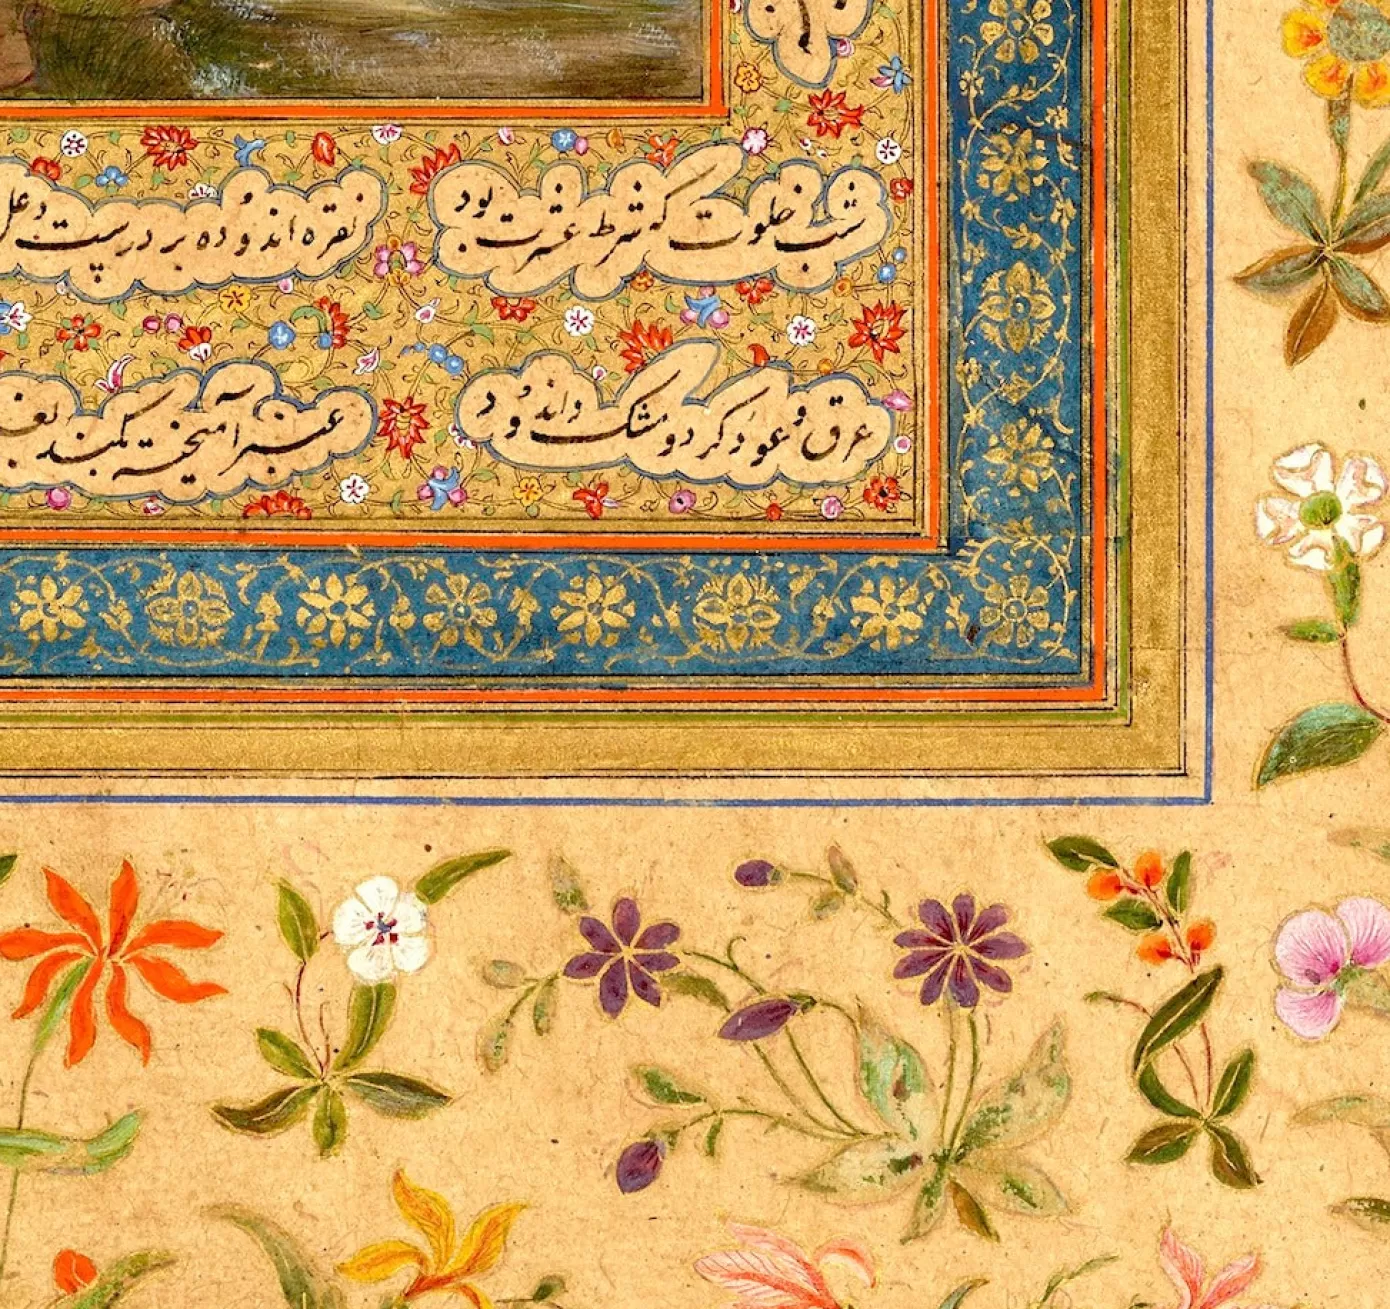 شب خلوت که شرط عشرت بود نقره اندوده بر درست دغل
عرق و عود کرد و مشک اندود عنبر آمیخته بگند